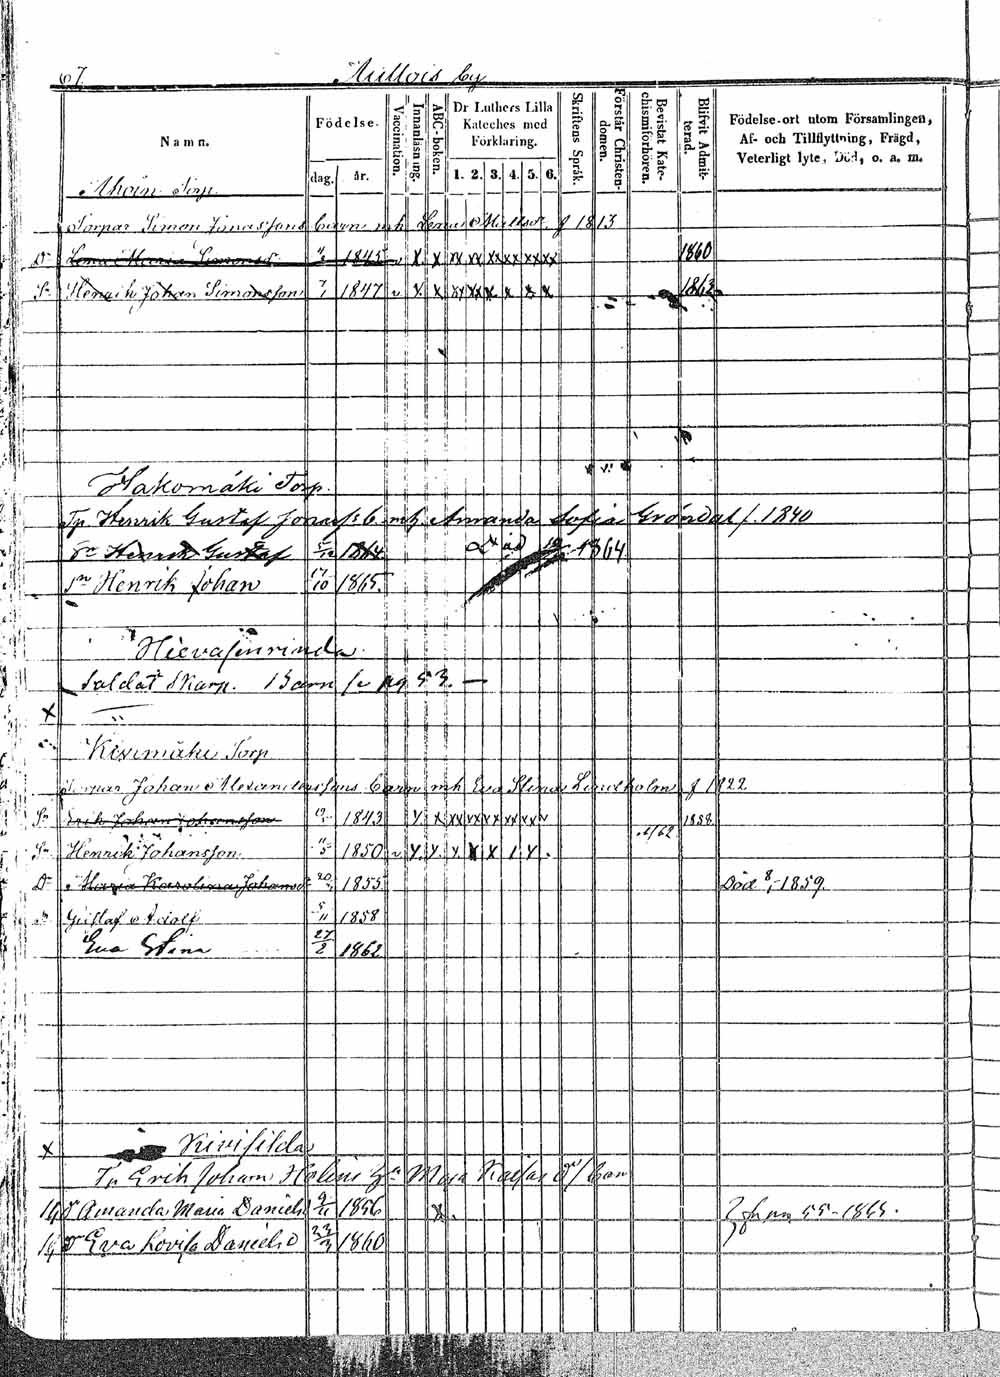 67. Mullois by
Namn. Födelse- dag. år. Vaccination. Innanläsning. ABC-boken. Dr Luthers Lilla Kateches med Förklaring. 1. 2. 3. 4. 5. 6. Skriftens Språk. Förstår Christendomen. Bevistat Katechismiförhören. Blifvit Admitterad. Födelse-ort utom Församlingen, Af- och Tillflyttning, Frägd, Veterligt lyte, Död, o. a. m.
Torp.
Torpar Simon Jonassons barn m h Lena Mattsdr f 1813
Dr Lena Maria Simonsd. 1845 v x x xx xx xx xx xx xx 1860
Sn Henrik Johan Simonsson 1847 v x x xx xx x x x x 1863
Hakomäki Torp.
Tp Henrik Gustaf Jonass: b. mh Amanda Sofia Gröndal f. 1840
Sn Henrik Gustaf 1864 Död 1864
sn Henrik Johan 17/10 1865.
Hievasinrinda.
Soldat Skarp. Barn se pag 53. —
x
Kiximäki Torp
Torpar Johan Alexanderssons barn mh Eva Stina Lindholm f 1822
Sn Erik Johan Johansson 1843 x x xx xx xx xx xx 1858
Sn Henrik Johansson 1850 v x x x x x 1 x .
Dr Maria Karolina Johansd 1855 Död 1859.
Sn Gustaf Adolf 5/11 1858
Eva Stina 27/2 1862
x Kivisilda
Erik Johan Holins Maja Kaisas barn
Dr Amanda Maria Danielsd 1856 x. 55 - 1865.
Dr Eva Lovisa Danielsd 23/3 1860